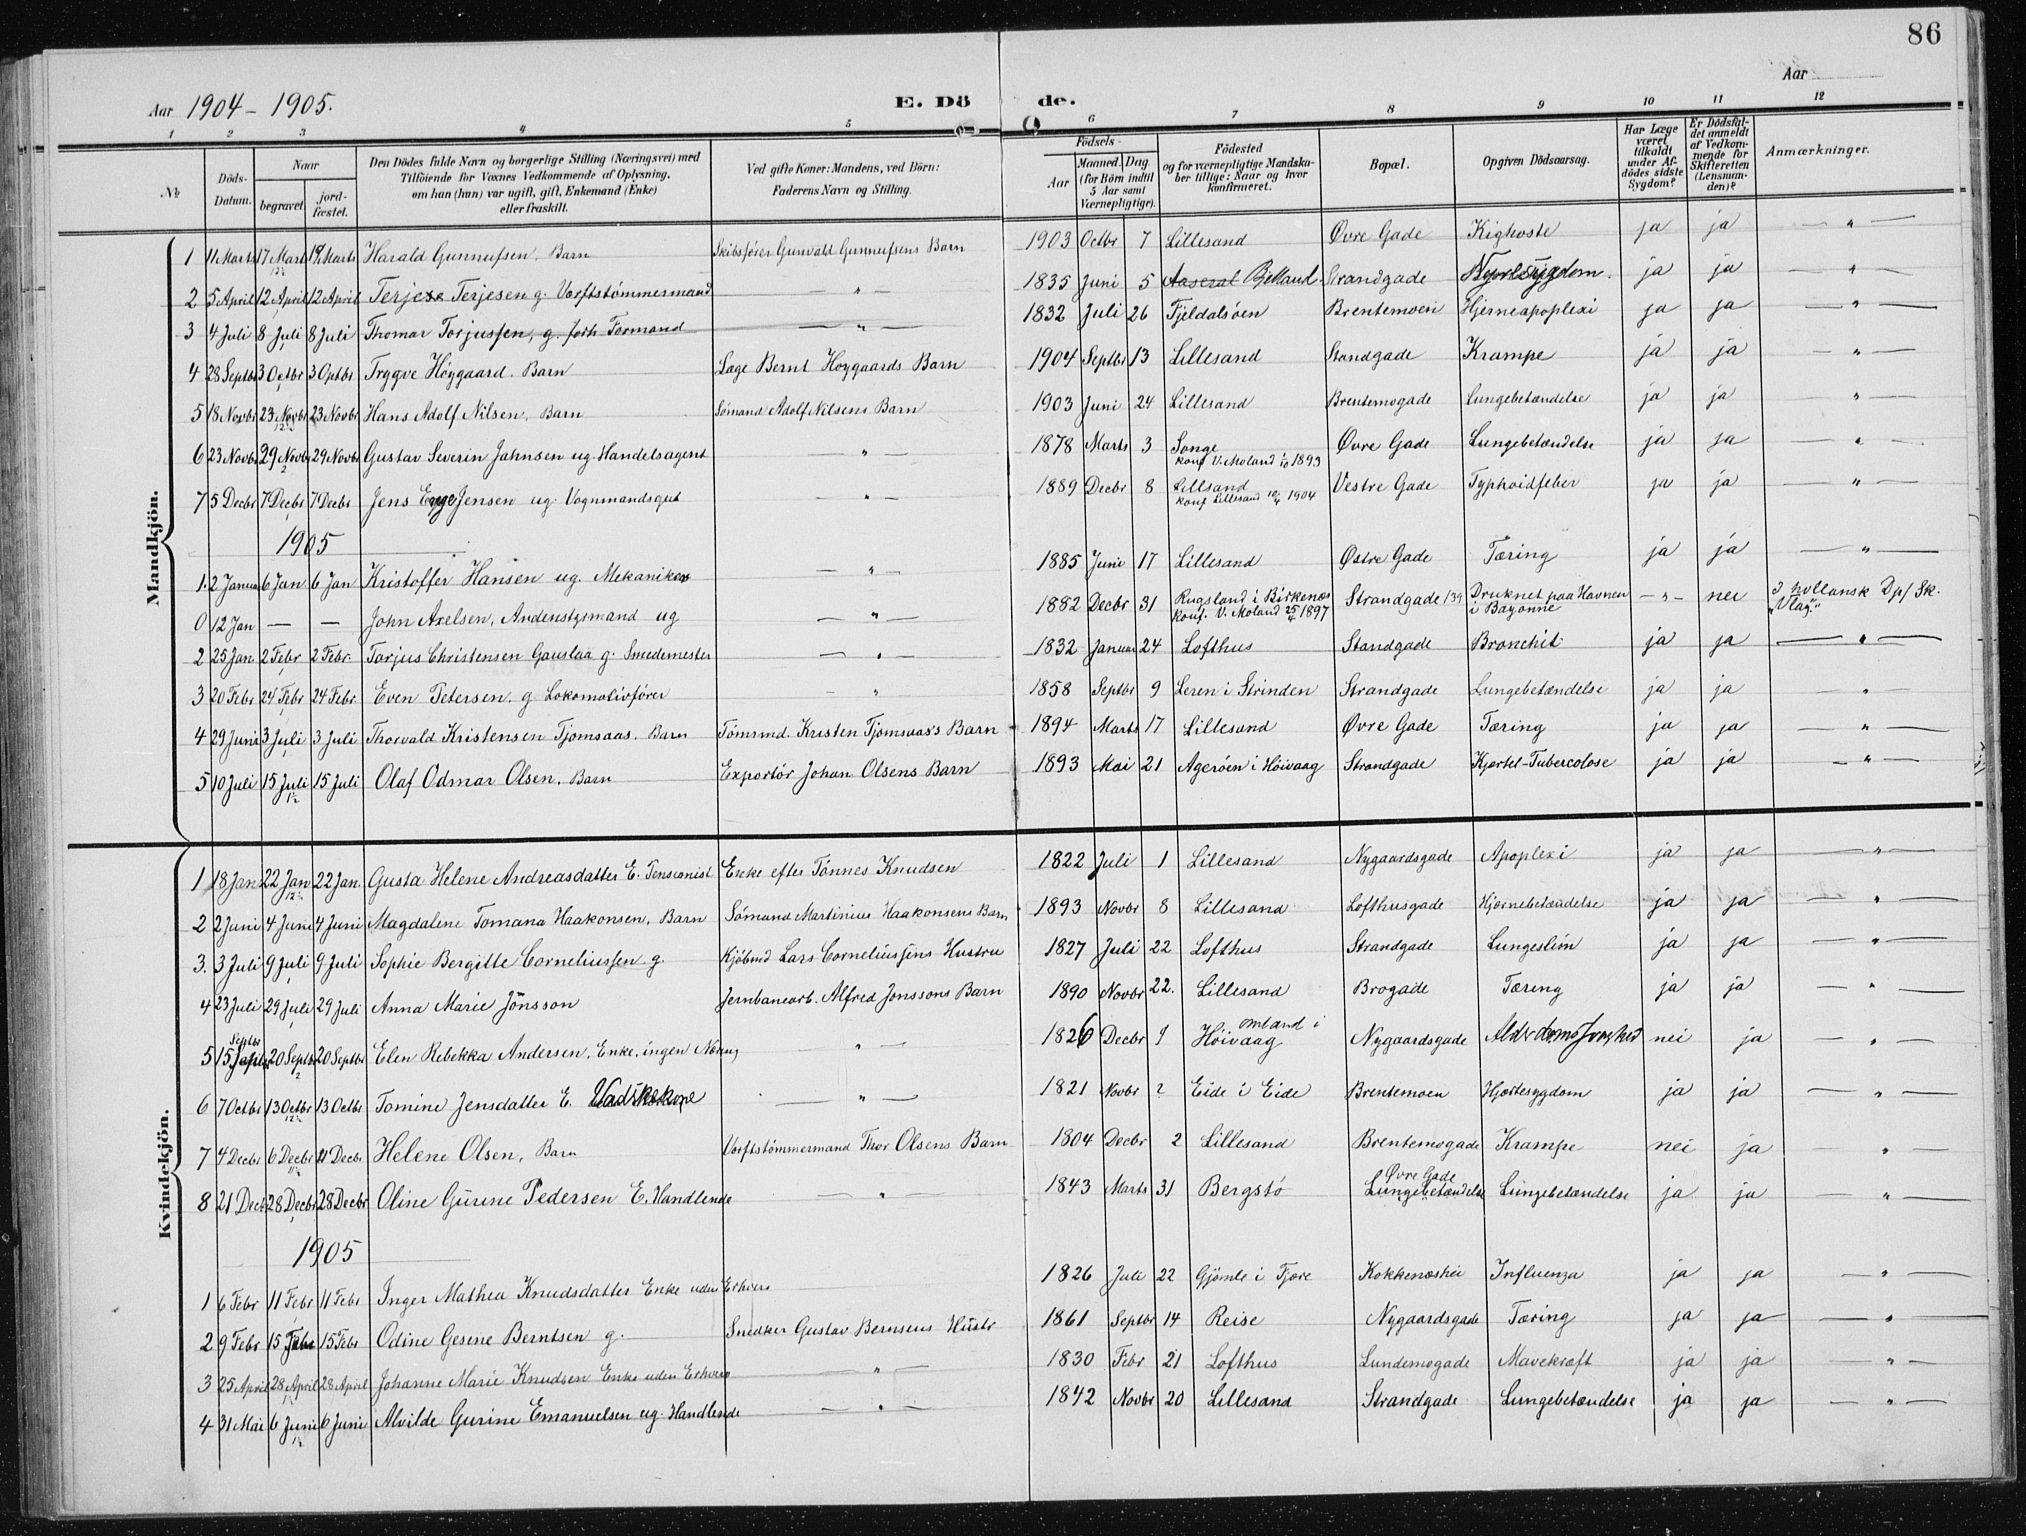 86
Aar 1904-1905.
E. Dö de.
Aar
1 2 3 4 5 6 7 8 9 10 11 12
№
Döds-Datum.
Naar
begravet.
jord-fæstet.
Den Dödes fulde Navn og borgerlige Stilling (Næringsvei) med
Tilföiende for Voxnes Vedkommende af Oplysning,
om han (hun) var ugift, gift, Enkemand (Enke)
eller fraskilt.
Ved gifte Koner: Mandens, ved Börn:
Faderens Navn og Stilling.
Födsels-
Aar
Maaned. Dag.
(for Börn indtil
5 Aar samt
Værnepligtige).
Födested
og for værnepligtige Mandska-
ber tillige: Naar og hvor
konfirmeret.
Bopæl.
Opgiven Dödsaarsag.
Har Læge
været
tilkaldt
under Af-
dödes sidste
Sygdom?
Er Dödsfal-
det anmeldt
af Vedkom-
mende for
Skifteretten
(Lensman-
den)?
Anmærkninger.
Mandkjön.
1 11 Marts 17 Mart 12½ 19 Marts Harald Gunnufsen, Barn Skibsfører Gunvald Gunnufsens Barn 1903 Octbr 7 Lillesand Øvre Gade Kighoste ja ja — " —
2 5 April 12 April 12 April Terjese Terjesen g. Værftstømmermand — " — 1835 Juni 5 Aaseral Bjelland Strandgade Nyresygdom. ja ja — " —
3 4 Juli 8 Juli 8 Juli Thomas Torjussen, g. forh. Formand — " — 1832 Juli 26 Fjeldalsöen Brentemoen Hjerneapoplexi ja ja — " —
4 28 Septbr 3 Octbr 3 Optbr Trygve Höygaard. Barn Læge Bernt Hoygaards Barn 1904 Septbr 13 Lillesand Standgade Krampe ja ja — " —
5 18 Novbr 23 Novbr 12½ 23 Novbr Hans Adolf Nilsen, Barn Sömand Adolf Nilsens Barn 1903 Juni 24 Lillesand Brentemogade Lungebetændelse ja ja — " —
6 23 Novbr 29 Novbr 2 29 Novbr Gustav Severin Jahnsen ug. Handelsagent — " — 1878 Marts 3 Songe Øvre Gade Lungebetændelse ja ja — " —
konf V. Moland 1/10 1893
7 5 Decbr 7 Decbr 7 Decbr Jens Enge Jensen ug. Vognmandsgut — " — 1889 Decbr 8 Lillsand Vestre Gade Typhoidfeber ja ja — " —
konf Lillesand 10/4 1904
1905
1. 2 Januar 6 Jan 6 Jan Kristoffer Hansen ug. Mekaniker — " — 1885 Juni 17 Lillesand Østre Gade Tæring ja ja — " —
0 12 Jan — — John Axelsen, Andenstyrmand ug — " — 1882 Decbr 31 Rugsland i Birkenæs Strandgade 139 Druknet paa Havnen — " — nei I hollansk Dp/Sk.
konf. V. Moland 25/4 1897 i Bayonne "Vlag".
2 25 Jan. 2 Febr 2 Febr. Torjus Christensen Gauslaa g. Smedemester — " — 1832 Januar 24 Lofthus Standgade Bronchit ja ja — " —
3 20 Febr 24 Febr 24 Febr. Even Petersen. g. Lokomotivfører — " — 1858 Septbr 9 Leren i Strinden Strandgade Lungebetændelse ja ja — " —
4 29 Juni 3 Juli 3 Juli Thorvald Kristensen Tjomsaas. Barn Tömmd. Kristen Tjomsaas's Barn 1894 Marts 17 Lillesand Øvre Gade Tæring ja ja — " —
5 10 Juli 15 Juli 1½ 15 Juli Olaf Odmar Olsen. Barn Exportör Johan Olsens Barn 1893 Mai 21 Ageröen i Höivaag Strandgade Kjertel-Tubercolose ja ja — " —
Kvindekjön.
1 18 Jan 22 Jan 12½ 22 Jan. Gusta Helene Andreasdatter E. Pensionist Enke efter Tönnes Knudsen 1822 Juli 1 Lillesand Nygaardsgade Apoplexi ja ja — " —
2 2 Juni 4 Juni 4 Juni Magdalene Tomana Haakonsen, Barn Sömand Martinius Haakonsens Barn 1893 Novbr 8 Lillesand Lofthusgade Hjernebetændelse ja ja — " —
3. 3 Juli 9 Juli 9 Juli Sophie Bergitte Corneliussen g. Kjöbmd Lars Corneliussens Hustru 1827 Juli 22 Lofthus Strandgade Lungeslim ja ja — " —
4 23 Juli 29 Juli 29 Juli Anna Marie Jönsson Jernbanearb. Alfred Jonssons Barn 1890 Novbr 22. Lillesand Brogade Tæring ja ja — " —
5 15 Septbr 20 Septbr 2 20 Septbr Elen Rebekka Andersen, Enke, ingen Næring — " — 1826 Decbr 9 Omland i Höivaag Nygaardsgade Alderdomssvaghed nei ja — " —
6 7 Octbr 13 Octbr 12½ 13 Octbr Tomine Jensdatter E. Vadskekone — " — 1821 Novbr ? Eide i Eide Brentemoen Hjertesygdom ja ja — " —
7 4 Decbr 6 Decbr 11½ 11 Decbr Helene Olsen, Barn Værftstömmermand Thor Olsens Barn 1804 Decbr 2 Lillesand Brentemogade Krampe nei ja "
8 21 Decbr 28 Decbr 28 Decbr Oline Gurine Pedersen E. Handlende — " — 1843 Marts 31 Bergstö Øvre Gade Lungebetændelse Lungebetændelse ja ja "
1905
1 6 Febr 11 Febr 11 Febr Inger Mathea Knudsdatter Enke uden Erhverv 1826 Juli 22 Gjömle i Fjære Kokkenæshei Influenza ja ja — " —
2 9 Febr 15 Febr 15 Febr Odine Gesine Berntsen g. Snedker Gustav Bernsens Hustr 1861 Septbr 14 Reise Nygaardsgade Tæring ja ja — " —
3 25 April 28 April 1½ 28 April Johanne Marie Knudsen Enke uden Erhverv — " — 1830 Febr 21 Lofthus Lundemogade Mavekræft ja ja — " —
4 31 Mai 6 Juni 1½ 6 Juni Alvilde Gurine Emanuelsen ug. Handlende — " — 1842 Novbr 20 Lillesand Strandgade Lungebetændelse ja ja — " —